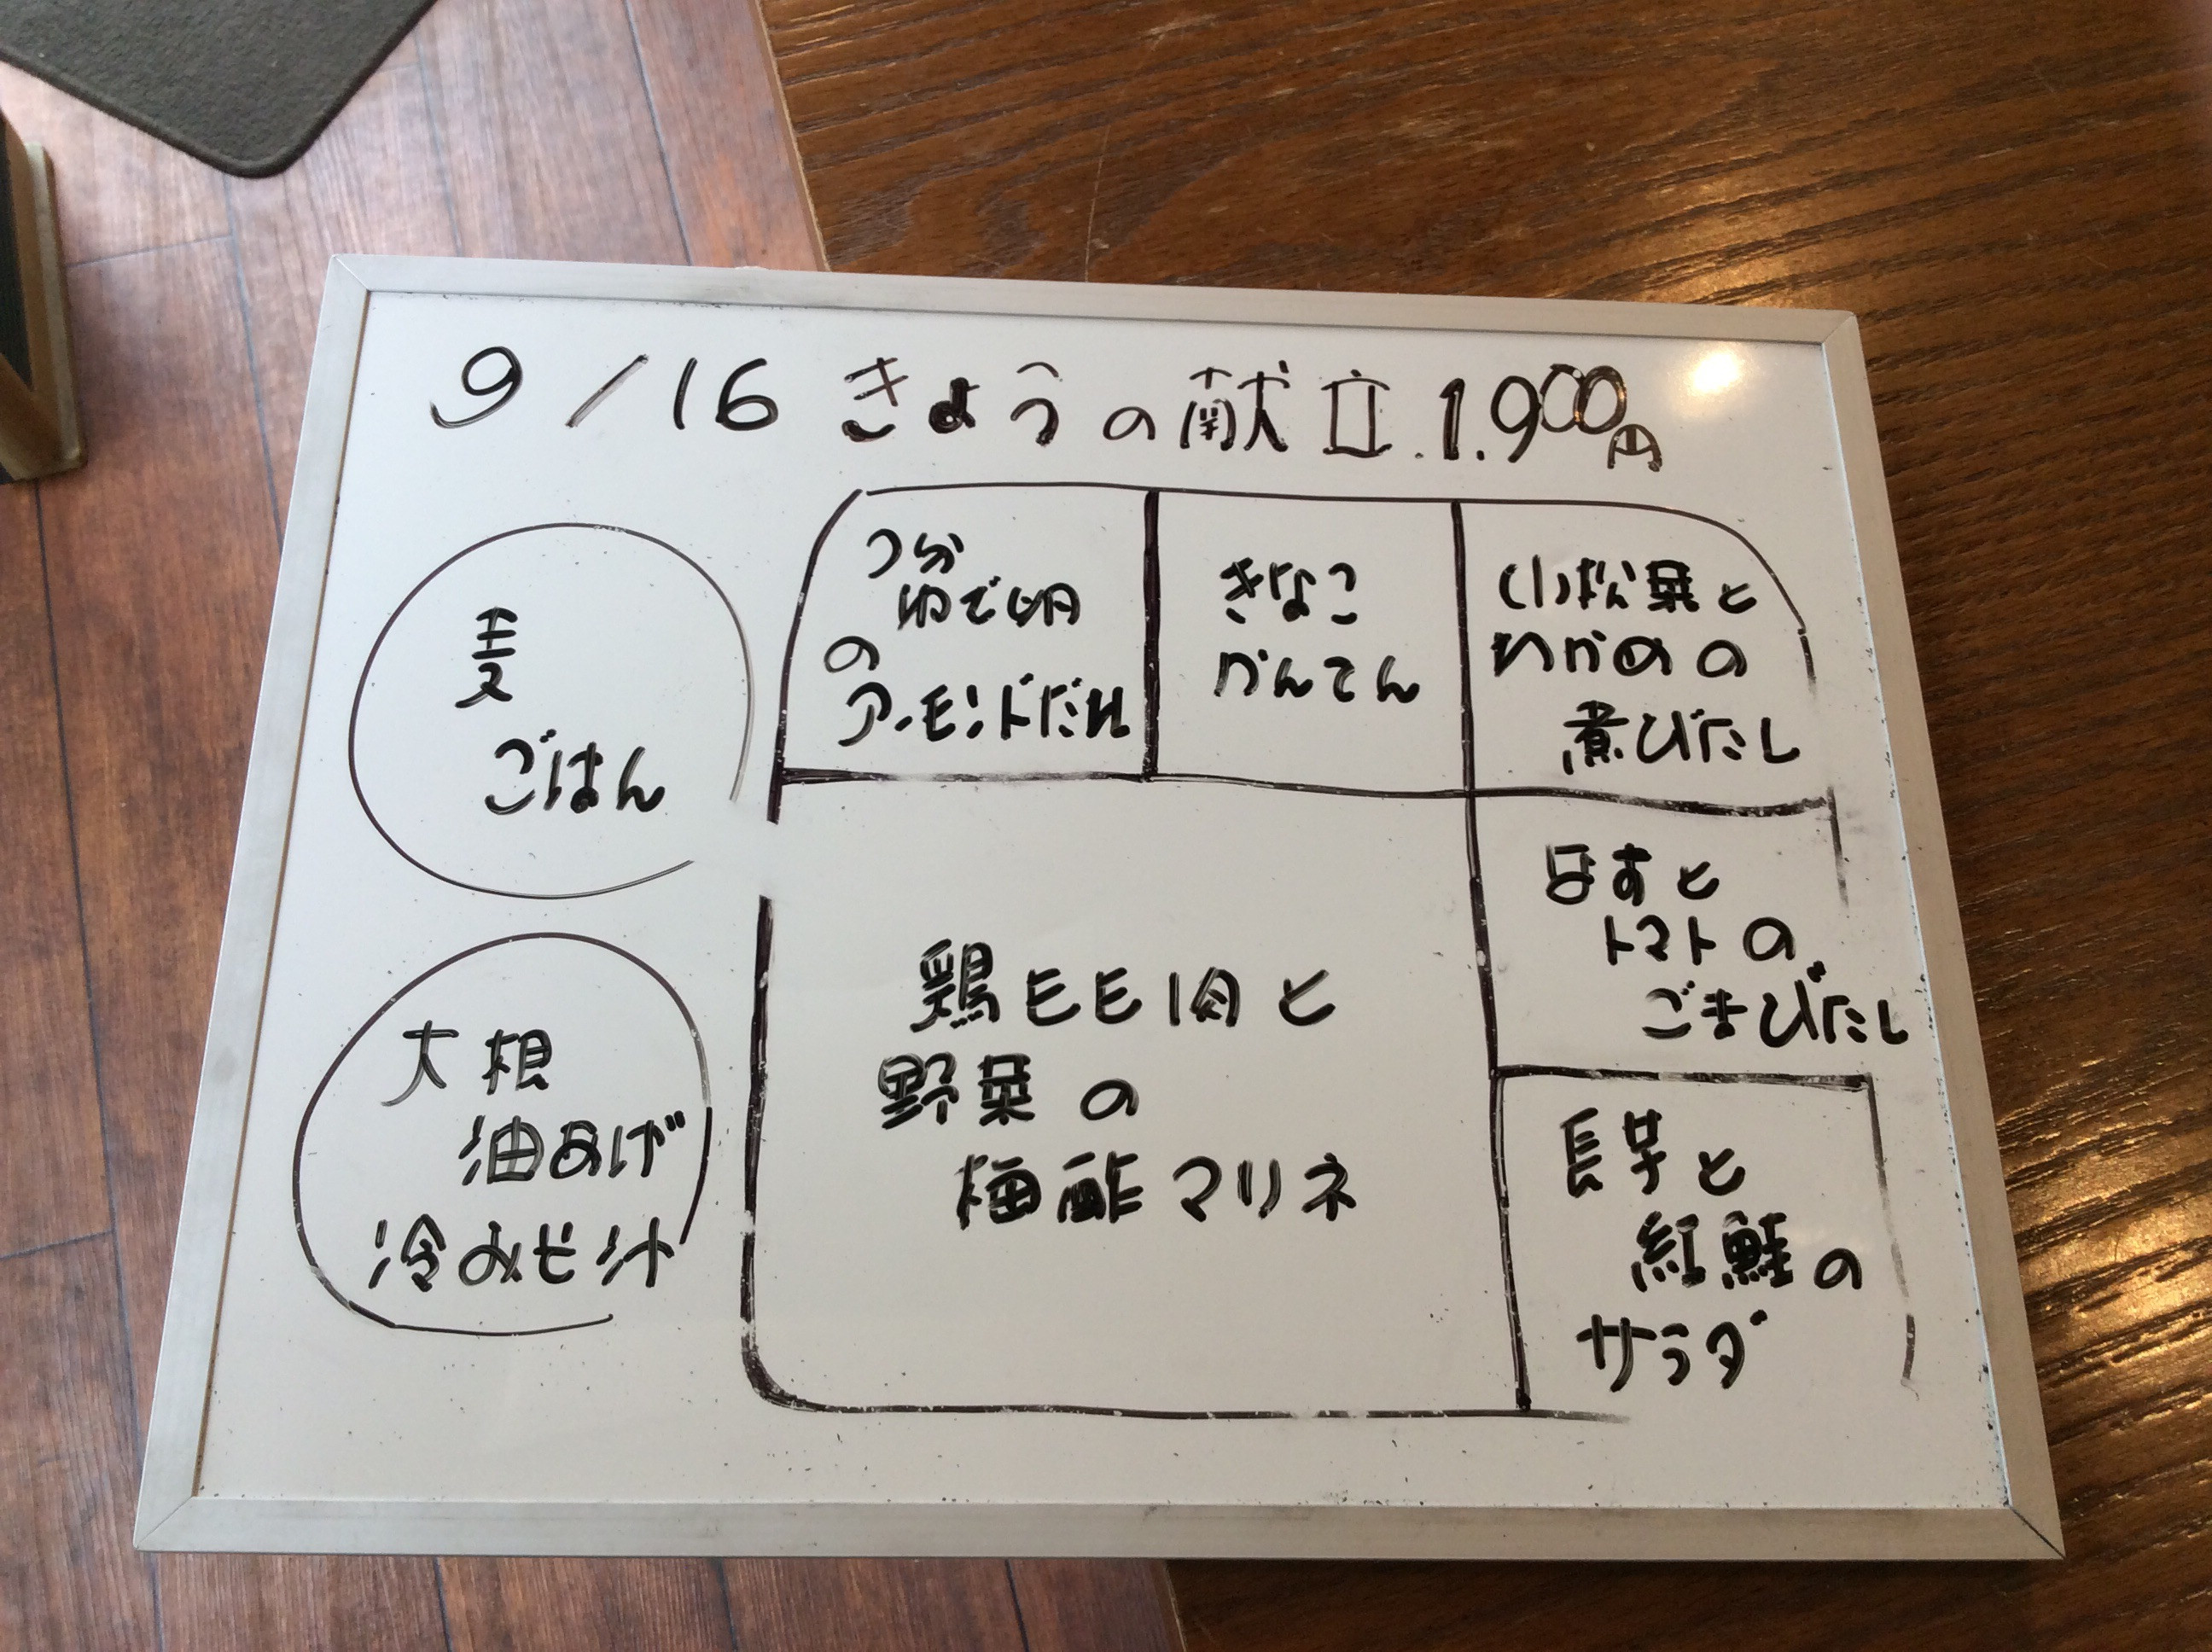 9/16 きょうの献立.1.900円
麦
ごはん
大根
油あげ
冷みそ汁
7分
ゆで卵
の
アーモンドだれ
きなこ
かんてん
小松菜と
わかめの
煮びたし
鶏モモ肉と
野菜の
梅酢マリネ
なすと
トマトの
ごまびたし
長芋と
紅鮭の
サラダ